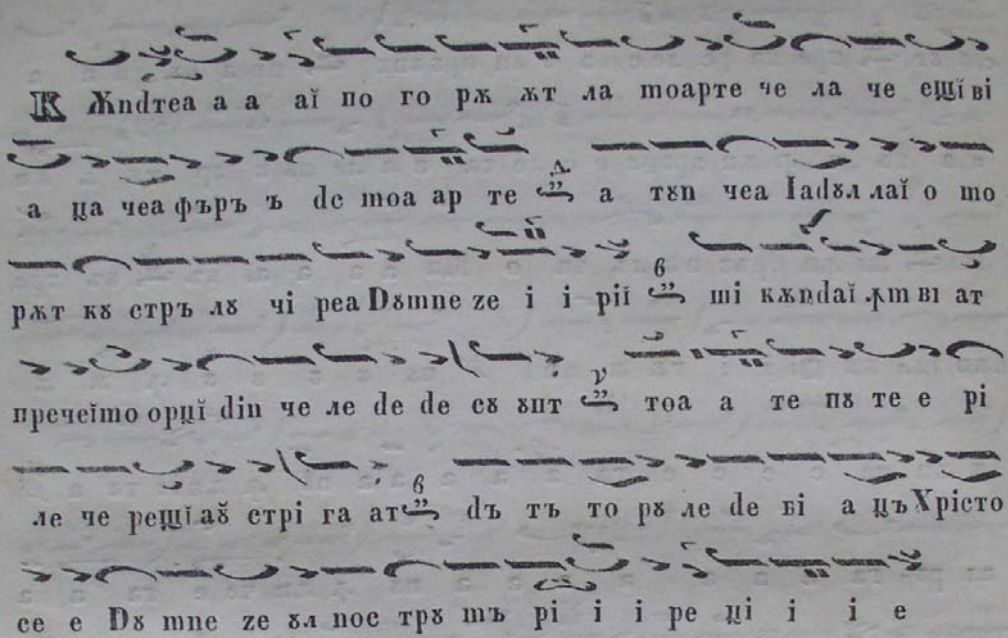 К Ѫndтеа а а аĭ по го рѫ ѫт ла тоарте че ла че ещĭ ві
а ца чеа фъръ ъ de тоа ар те а тꙋп чеа Іаdꙋл лаĭ о то
рѫт кꙋ стръ лꙋ чі реа Dꙋmne zе і і ріĭ ші кѫndаĭ ꙟm ві ат
пречеĭто орцĭ din че ле de de сꙋ ꙋпт тоа а те пꙋ те е рі
ле че рещĭ аꙋ стрі га ат dъ тъ то рꙋ ле de ві а цъ Хрісто
се е Dꙋ mne zе ꙋл нос трꙋ mъ рі і і ре ці і і е